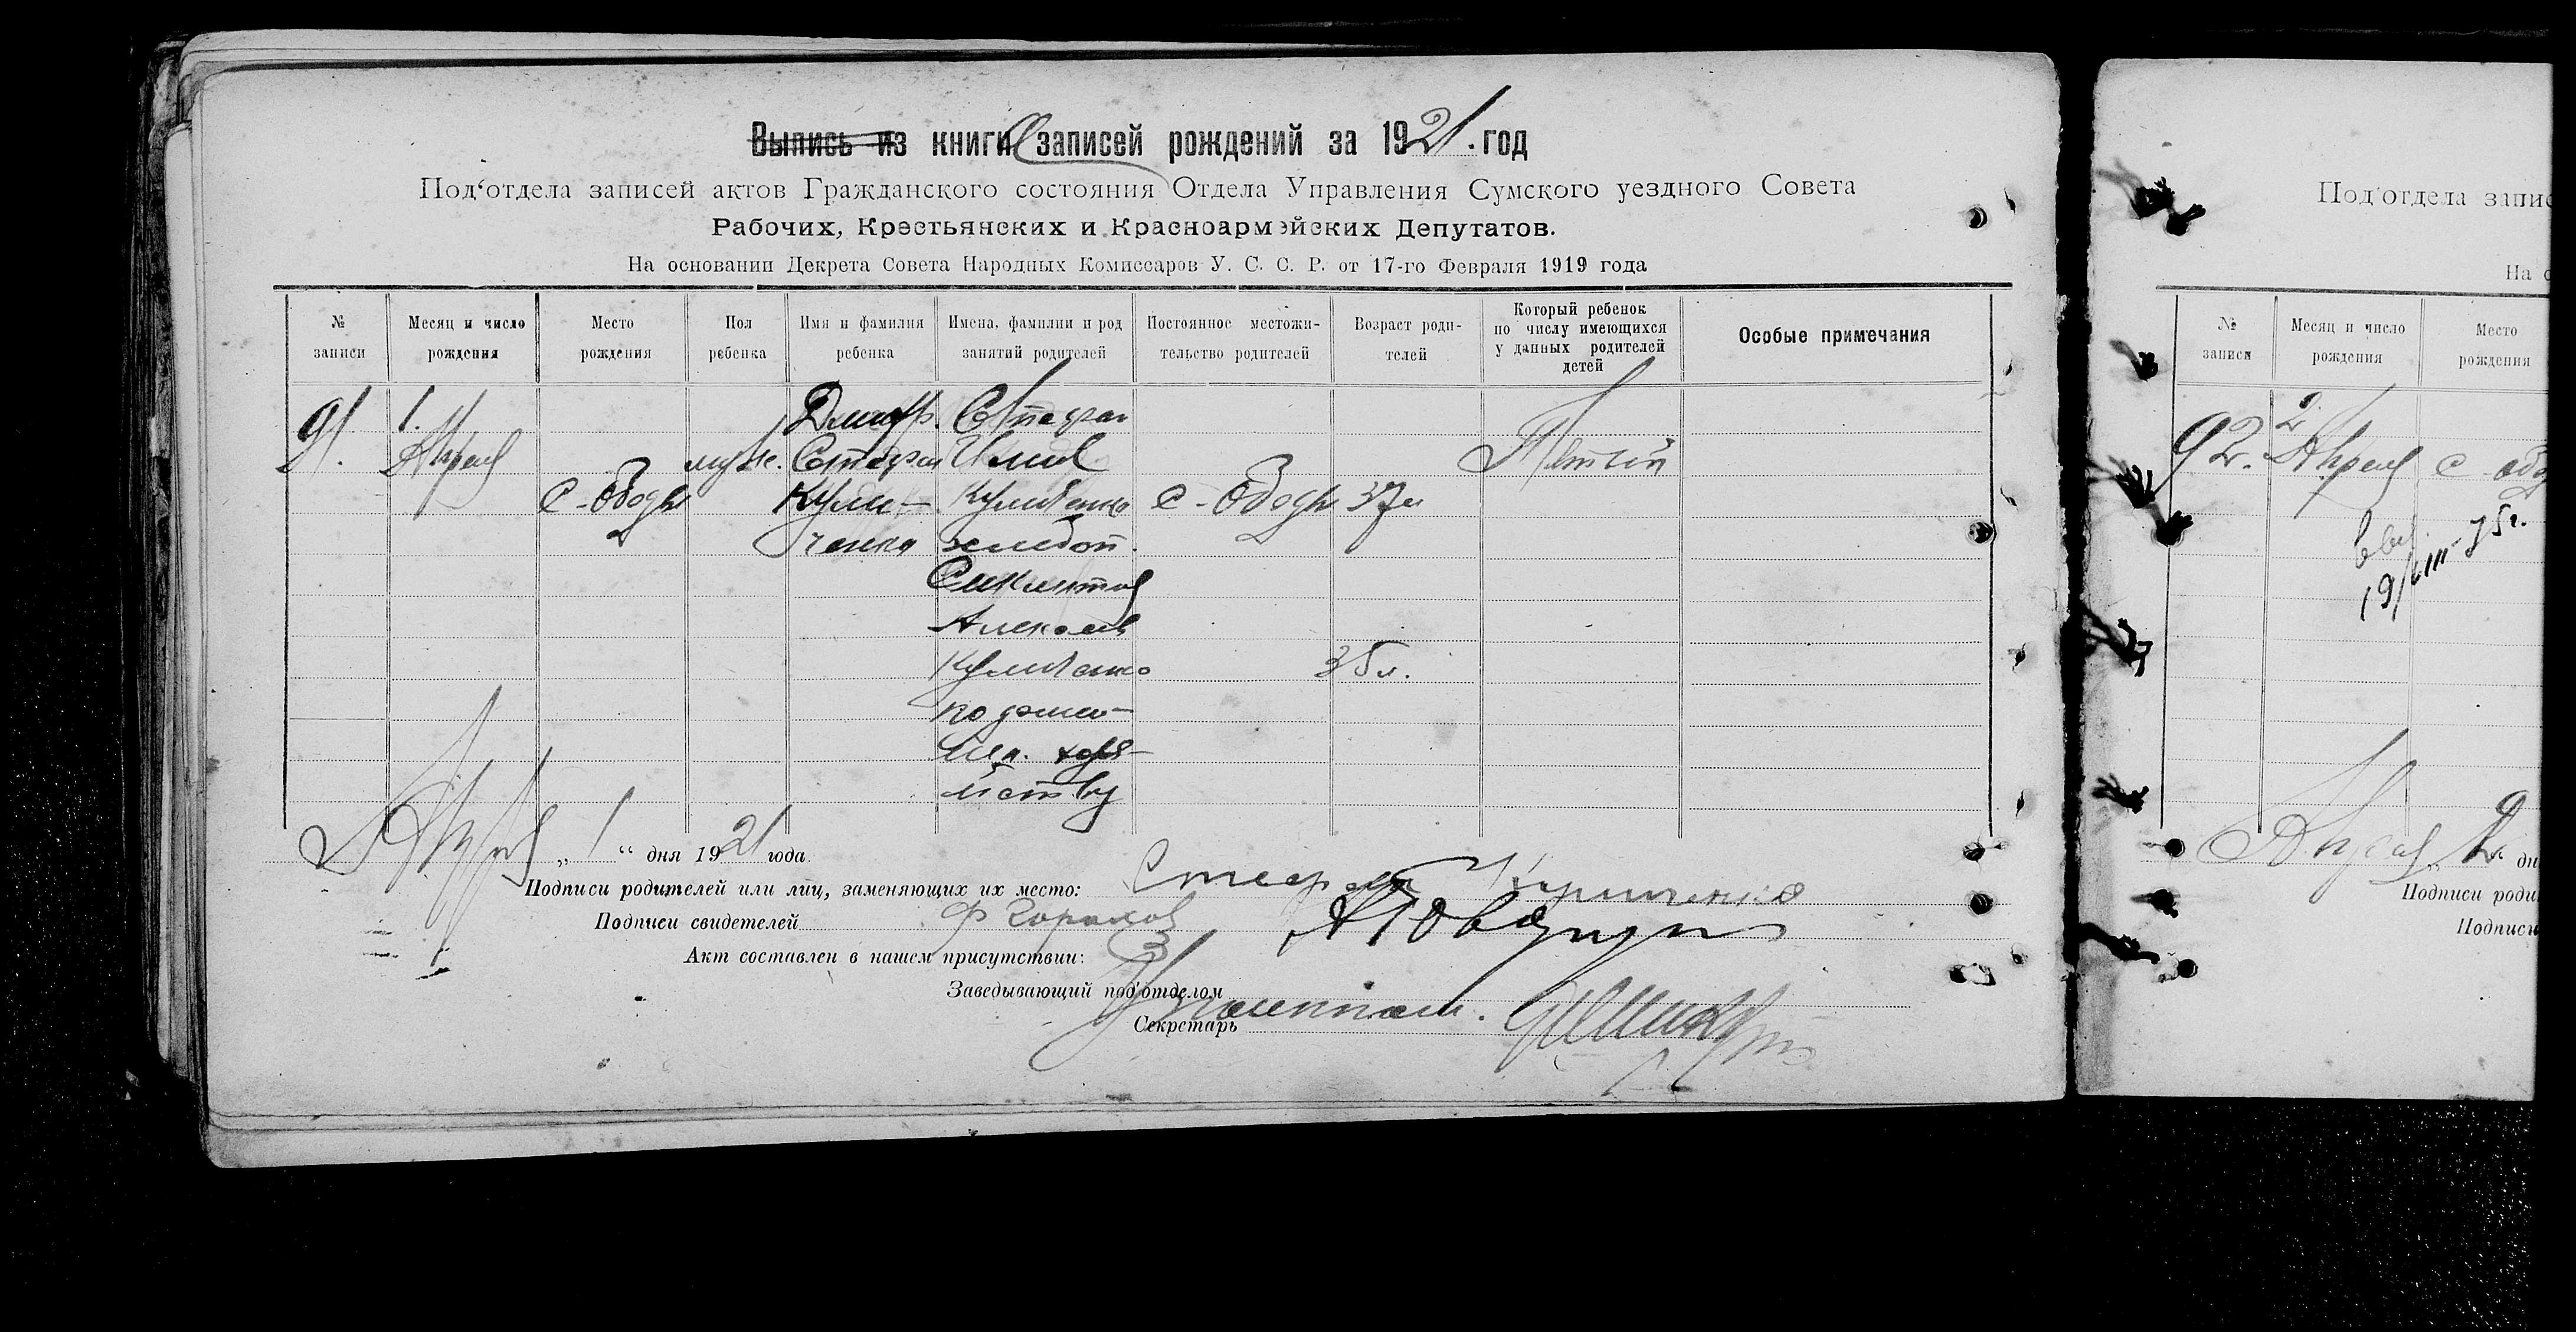 Выпись из книги записей рождений за 1921 год
Под‘отдела записей актов Гражданского состояния Отдела Управления Сумского уездного Совета
Рабочих, Крестьянских и Красноармейских Депутатов.
На основании Декрета Совета Народных Комиссаров У. С. С. Р. от 17-го Февраля 1919 года
№ записи
Месяц и число рождения
Место рождения
Пол ребенка
Имя и фамилия ребенка
Имена, фамилии и род занятий родителей
Постоянное местожи-
тельство родителей
Возраст роди-
телей
Который ребенок
по числу имеющихся
у данных родителей
детей
Особые примечания
91.
1.
Апрел
с-Ободы
муж.
Дмитр.
Стефан
Кули-
ченко
Стефан
Куличенко
хлебоп.
Куличенко
по домаш-
хозя-
йству
с-Ободы
37 л
35 л.
Пятый
Апрел „ 1 “ дня 1921 года.
Подписи родителей или лиц, заменяющих их место: Стефан Куличенко
Подписи свидетелей Ф Горохов
Акт составлен в нашем присутствии:
Заведывающий под‘отделом
Секретарь
Под‘отдела запис
На о
№ записи
Месяц и число рождения
Место рождения
92.
2.
Апрел
с-Обо
19/VIII-75г.
Апрел „ 2 дн
Подписи роди
Подписи